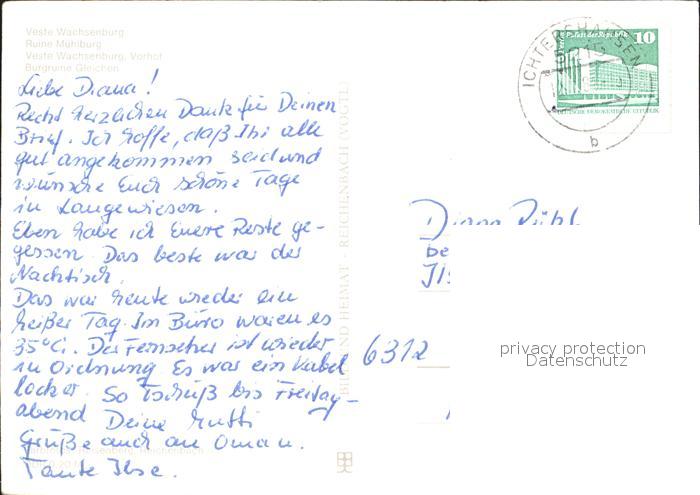 Veste Wachsenburg
Ruine Mühlburg
Veste Wachsenburg, Vorhof
Burgruine Gleichen
Liebe Diana!
Recht herzlichen Dank für Deinen
Brief. Ich hoffe, daß Ihr alle
gut angekommen seid und
wünsche Euch schöne Tage
in Langewiesen.
Eben habe ich Euere Reste ge-
gessen. Das beste war der
Nachtisch.
Das war heute wieder ein
heißer Tag. Im Büro waren es
35°C. Der Fernseher ist wieder
in Ordnung. Es war ein Kabel
locker. So Tschüß bis Freitag-
abend Deine Mutti
Grüße auch an Oma u.
Tante Ilse.
BILD UND HEIMAT · REICHENBACH (VOGTL)
ICHTERSHAUSEN
5215
b
Palast der Republik 10
DEUTSCHE DEMOKRATISCHE REPUBLIK
Diana
be
Ils
6312
privacy protection
Datenschutz